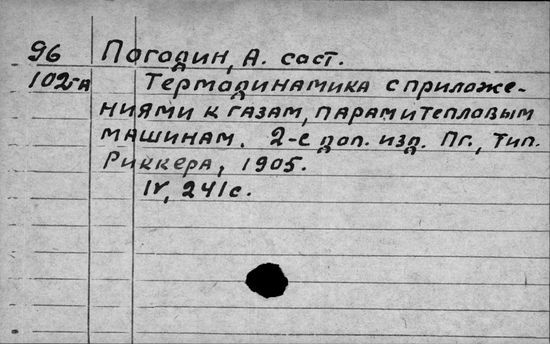 96 Погодин, А. сост.
102-А Термодинамика с приложе-
ниями к газам, парам и тепловым
машинам. 2-е доп. изд. Пг., тип.
Риккера, 1905.
IV, 241 с.